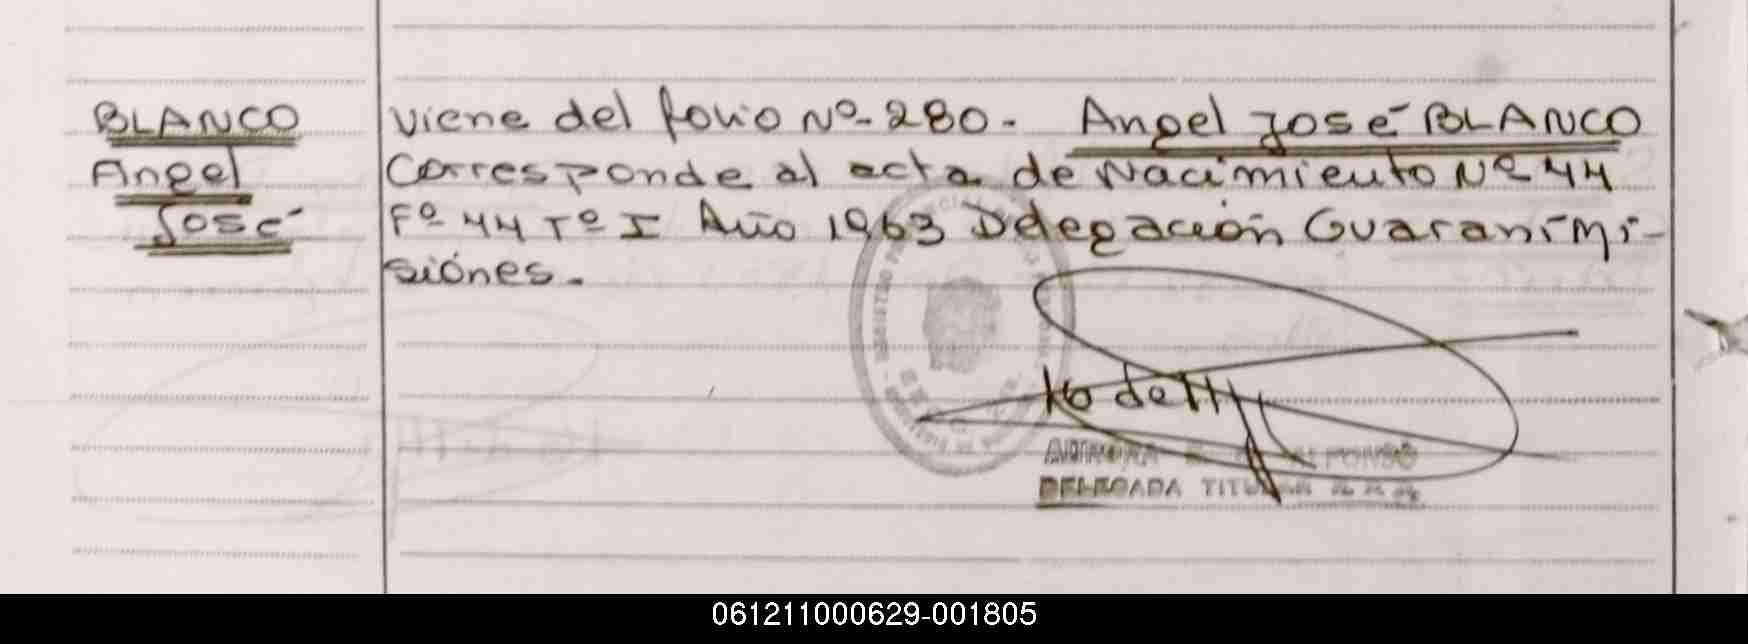 BLANCO
Angel
José
Viene del folio Nº 280. Angel José BLANCO
Corresponde al acta de Nacimiento Nº 44
Fº 44 Tº I Año 1963 Delegación Guaraní Mi-
siónes.
AURORA ALFONSO
DELEGADA TITULAR
061211000629-001805